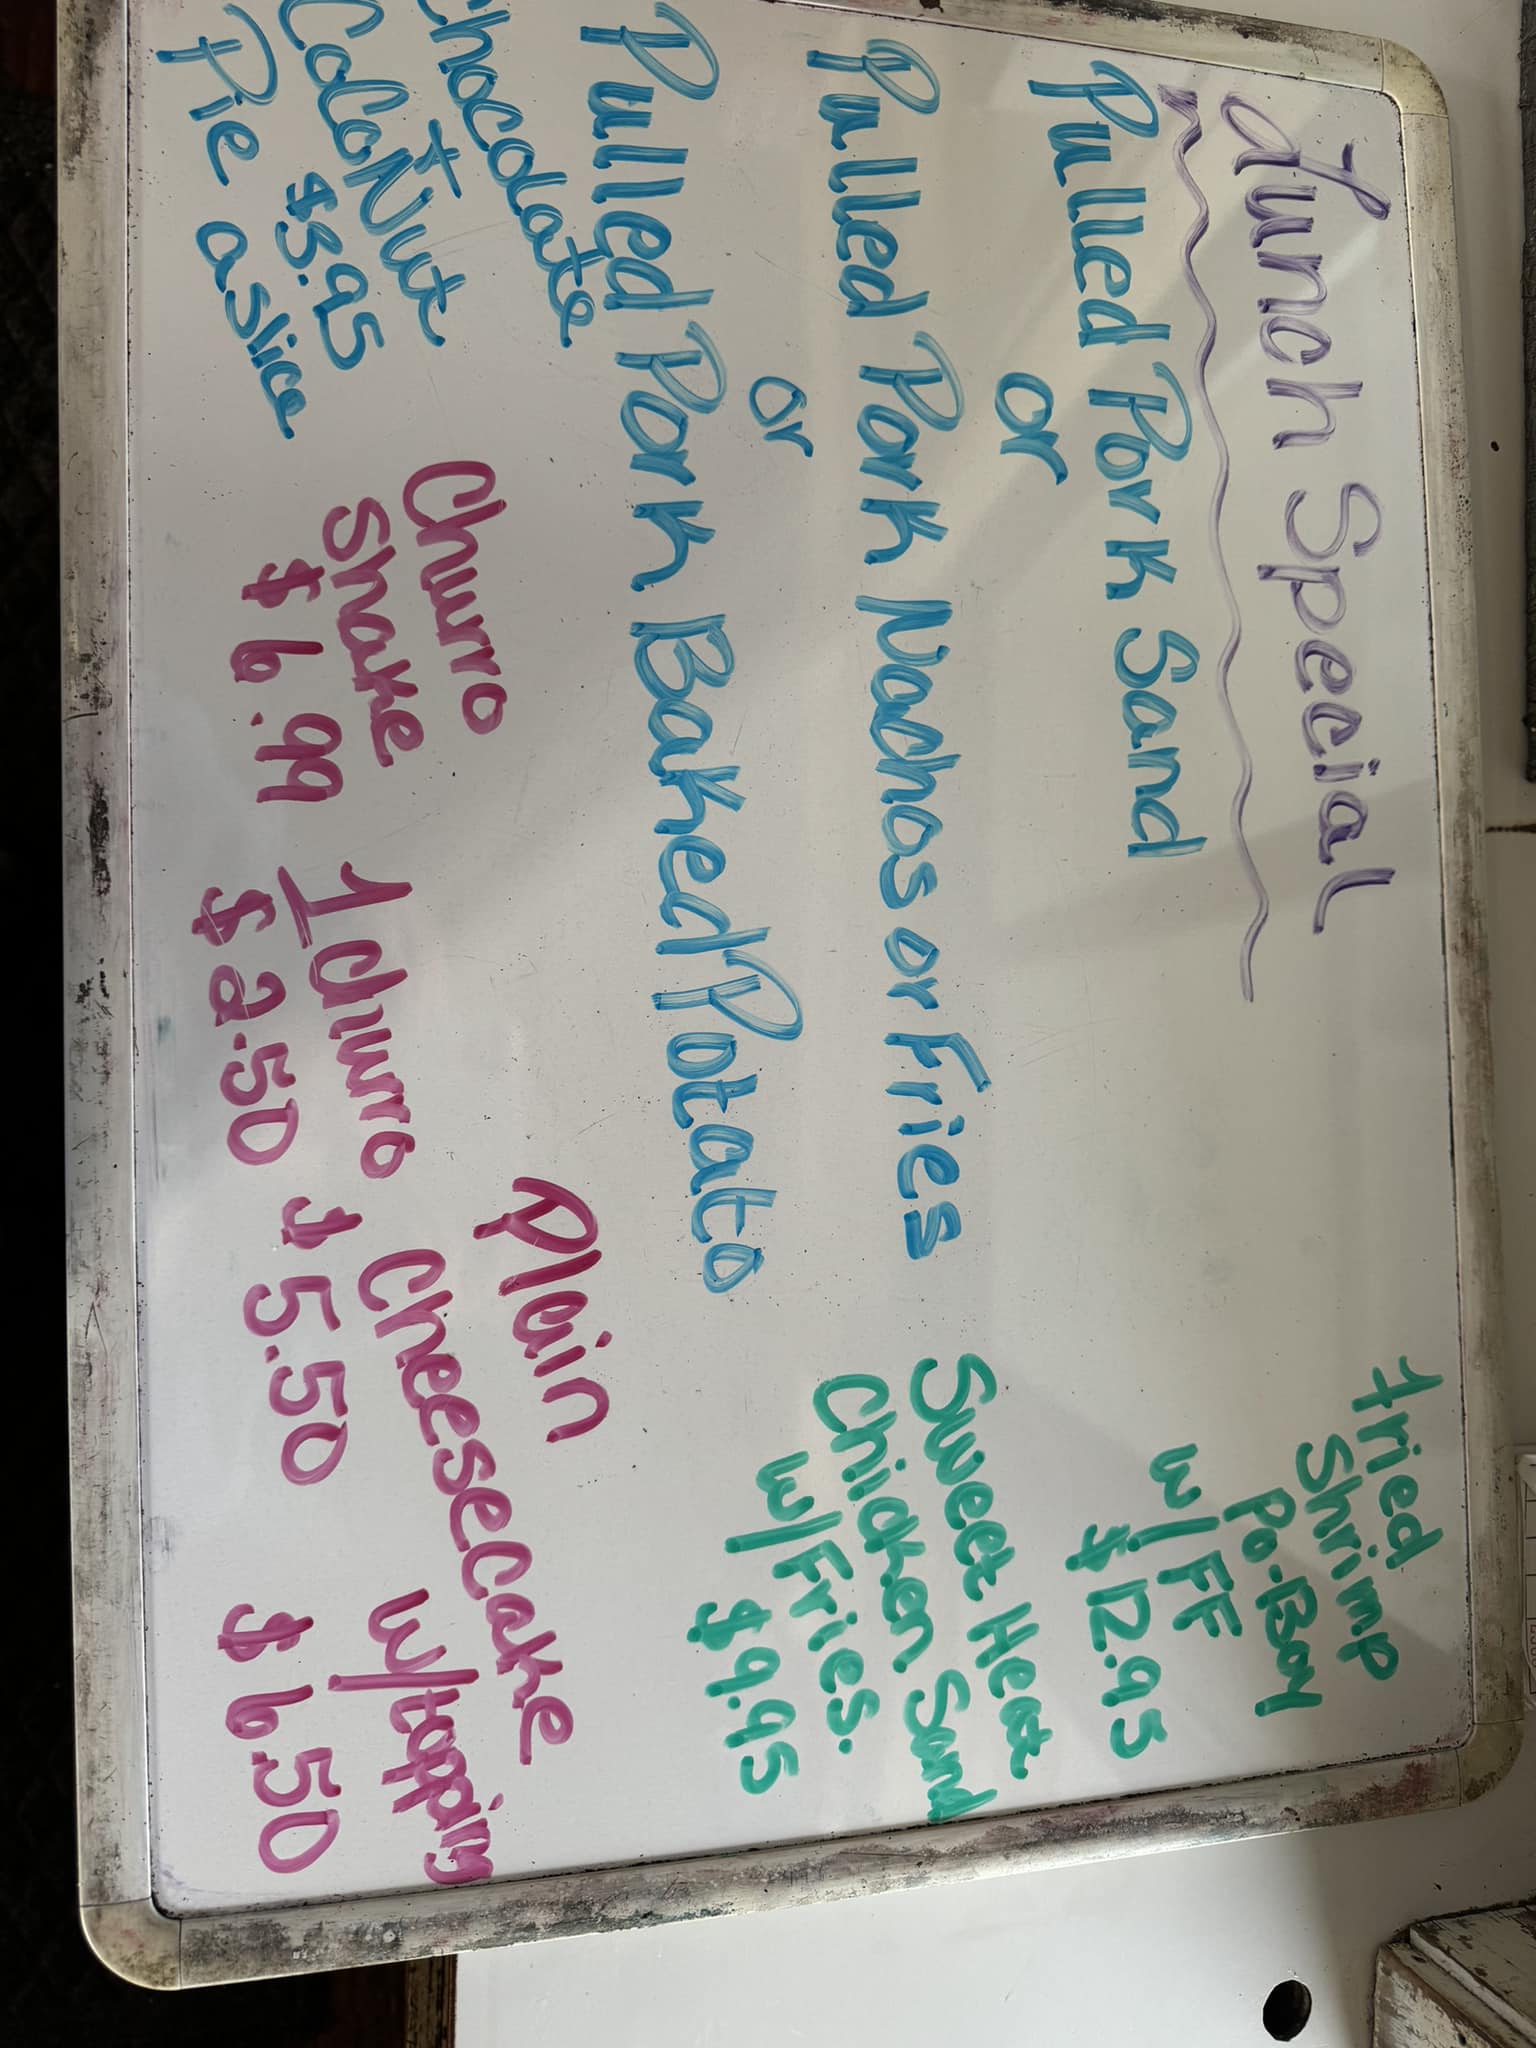 Lunch Special
Pulled Pork Sand
or
Pulled Pork Nachos or Fries
or
Pulled Pork Baked Potato
Fried
Shrimp
Po-Boy
w/FF
$12.95
Sweet Heat
Chicken Sand
w/Fries.
$9.95
Chocolate
+
CoCoNut
$5.95
Pie a slice
Churro
Shake
$6.99
1 churro
$2.50
Plain
Cheesecake
$5.50
w/topping
$6.50